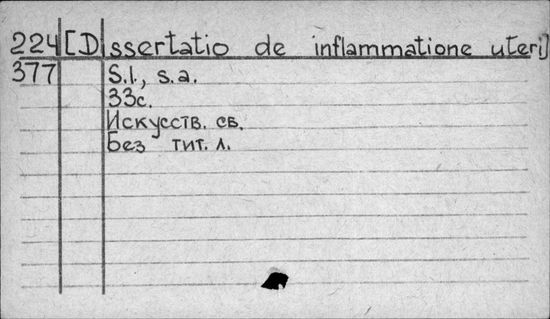 224 [Dissertatio de inflammatione uteri]
377 S.l., s.a.
33с.
Искусств. св.
Без тит. л.